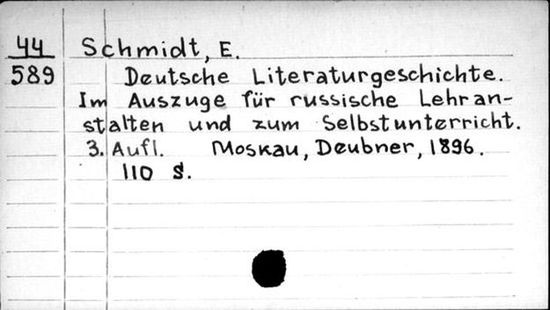 44 Schmidt, E.
589 Deutsche Literaturgeschichte.
Im Auszuge für russische Lehran-
stalten und zum Selbstunterricht.
3. Aufl. Moskau, Deubner, 1896.
110 S.